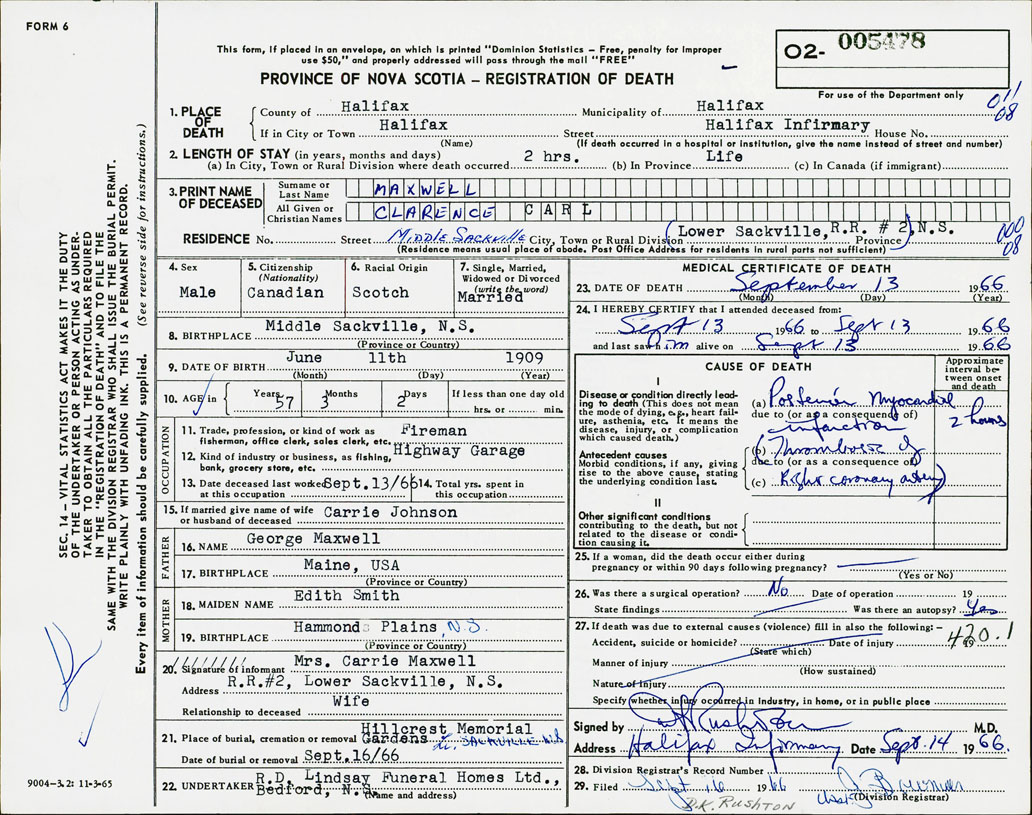 FORM 6
O2- 005478
This form, if placed in an envelope, on which is printed "Dominion Statistics – Free, penalty for improper
use $50," and properly addressed will pass through the mail "FREE"
PROVINCE OF NOVA SCOTIA – REGISTRATION OF DEATH
For use of the Department only
011
08
1. PLACE OF DEATH
County of Halifax Municipality of Halifax
If in City or Town Halifax Street Halifax Infirmary House No.
(Name) (If death occurred in a hospital or institution, give the name instead of street and number)
2. LENGTH OF STAY (in years, months and days)
(a) In City, Town or Rural Division where death occurred 2 hrs. (b) In Province Life (c) In Canada (if immigrant)
3. PRINT NAME OF DECEASED
Surname or Last Name MAXWELL
All Given or Christian Names CLARENCE CARL
RESIDENCE No. Street Middle Sackville City, Town or Rural Division (Lower Sackville, R.R. # 2) N.S. Province
(Residence means usual place of abode. Post Office Address for residents in rural parts not sufficient)
000
08
4. Sex Male
5. Citizenship (Nationality) Canadian
6. Racial Origin Scotch
7. Single, Married, Widowed or Divorced (write the word) Married
8. BIRTHPLACE Middle Sackville, N.S.
(Province or Country)
9. DATE OF BIRTH June 11th 1909
(Month) (Day) (Year)
10. AGE in Years 57 Months 3 Days 2 If less than one day old hrs. or min.
OCCUPATION
11. Trade, profession, or kind of work as fisherman, office clerk, sales clerk, etc. Fireman
12. Kind of industry or business, as fishing, bank, grocery store, etc. Highway Garage
13. Date deceased last worked at this occupation Sept.13/66
14. Total yrs. spent in this occupation
15. If married give name of wife or husband of deceased Carrie Johnson
FATHER
16. NAME George Maxwell
17. BIRTHPLACE Maine, USA
(Province or Country)
MOTHER
18. MAIDEN NAME Edith Smith
19. BIRTHPLACE Hammonds Plains, N.S.
(Province or Country)
20. Signature of informant Mrs. Carrie Maxwell
Address R.R.#2, Lower Sackville, N.S.
Relationship to deceased Wife
21. Place of burial, cremation or removal Hillcrest Memorial Gardens Lr. SACKVILLE N.S
Date of burial or removal Sept.16/66
22. UNDERTAKER R.D. Lindsay Funeral Homes Ltd., Bedford, N.S.
(Name and address)
MEDICAL CERTIFICATE OF DEATH
23. DATE OF DEATH September 13 1966
(Month) (Day) (Year)
24. I HEREBY CERTIFY that I attended deceased from:
Sept 13 1966 to Sept 13 1966
and last saw him alive on Sept 13 1966
CAUSE OF DEATH
Approximate interval between onset and death
I
Disease or condition directly leading to death (This does not mean the mode of dying, e.g., heart failure, asthenia, etc. It means the disease, injury, or complication which caused death.)
(a) Posterior Myocardial
due to (or as a consequence of)
infarction
2 hours
Antecedent causes
Morbid conditions, if any, giving rise to the above cause, stating the underlying condition last.
(b) Thrombosis of
due to (or as a consequence of)
(c) Right coronary artery
II
Other significant conditions contributing to the death, but not related to the disease or condition causing it.
25. If a woman, did the death occur either during
pregnancy or within 90 days following pregnancy?
(Yes or No)
26. Was there a surgical operation? No Date of operation 19
State findings Was there an autopsy? Yes
27. If death was due to external causes (violence) fill in also the following: –
Accident, suicide or homicide? Date of injury 19
420.1
(State which)
Manner of injury
(How sustained)
Nature of Injury
Specify whether injury occurred in Industry, in home, or in public place
Signed by Rushton M.D.
Address Halifax Infirmary Date Sept. 14 1966.
28. Division Registrar's Record Number
29. Filed Sept 16 1966
(Division Registrar)
D.K. RUSHTON
SEC. 14 – VITAL STATISTICS ACT MAKES IT THE DUTY
OF THE UNDERTAKER OR PERSON ACTING AS UNDER-
TAKER TO OBTAIN ALL THE PARTICULARS REQUIRED
IN THE "REGISTRATION OF DEATH" AND TO FILE THE
SAME WITH THE DIVISION REGISTRAR WHO SHALL ISSUE THE BURIAL PERMIT.
WRITE PLAINLY WITH UNFADING INK. THIS IS A PERMANENT RECORD.
Every item of information should be carefully supplied. (See reverse side for instructions.)
9004-3.2: 11-3-65